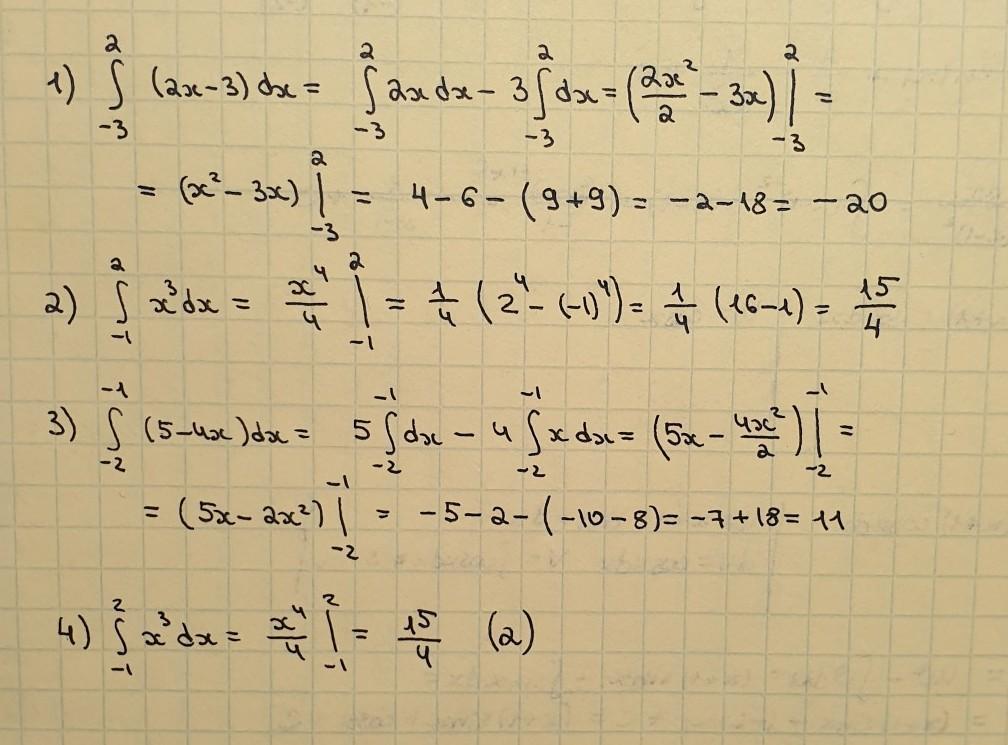 1) ∫₋₃² (2x-3)dx = ∫₋₃² 2x dx - 3∫₋₃² dx = (2x²/2 - 3x)|₋₃² =
= (x² - 3x)|₋₃² = 4-6-(9+9) = -2-18 = -20
2) ∫₋₁² x³dx = x⁴/4 |₋₁² = 1/4 (2⁴-(-1)⁴) = 1/4 (16-1) = 15/4
3) ∫₋₂⁻¹ (5-4x)dx = 5∫₋₂⁻¹ dx - 4∫₋₂⁻¹ x dx = (5x - 4x²/2)|₋₂⁻¹ =
= (5x - 2x²)|₋₂⁻¹ = -5-2-(-10-8) = -7+18 = 11
4) ∫₋₁² x³dx = x⁴/4 |₋₁² = 15/4 (2)